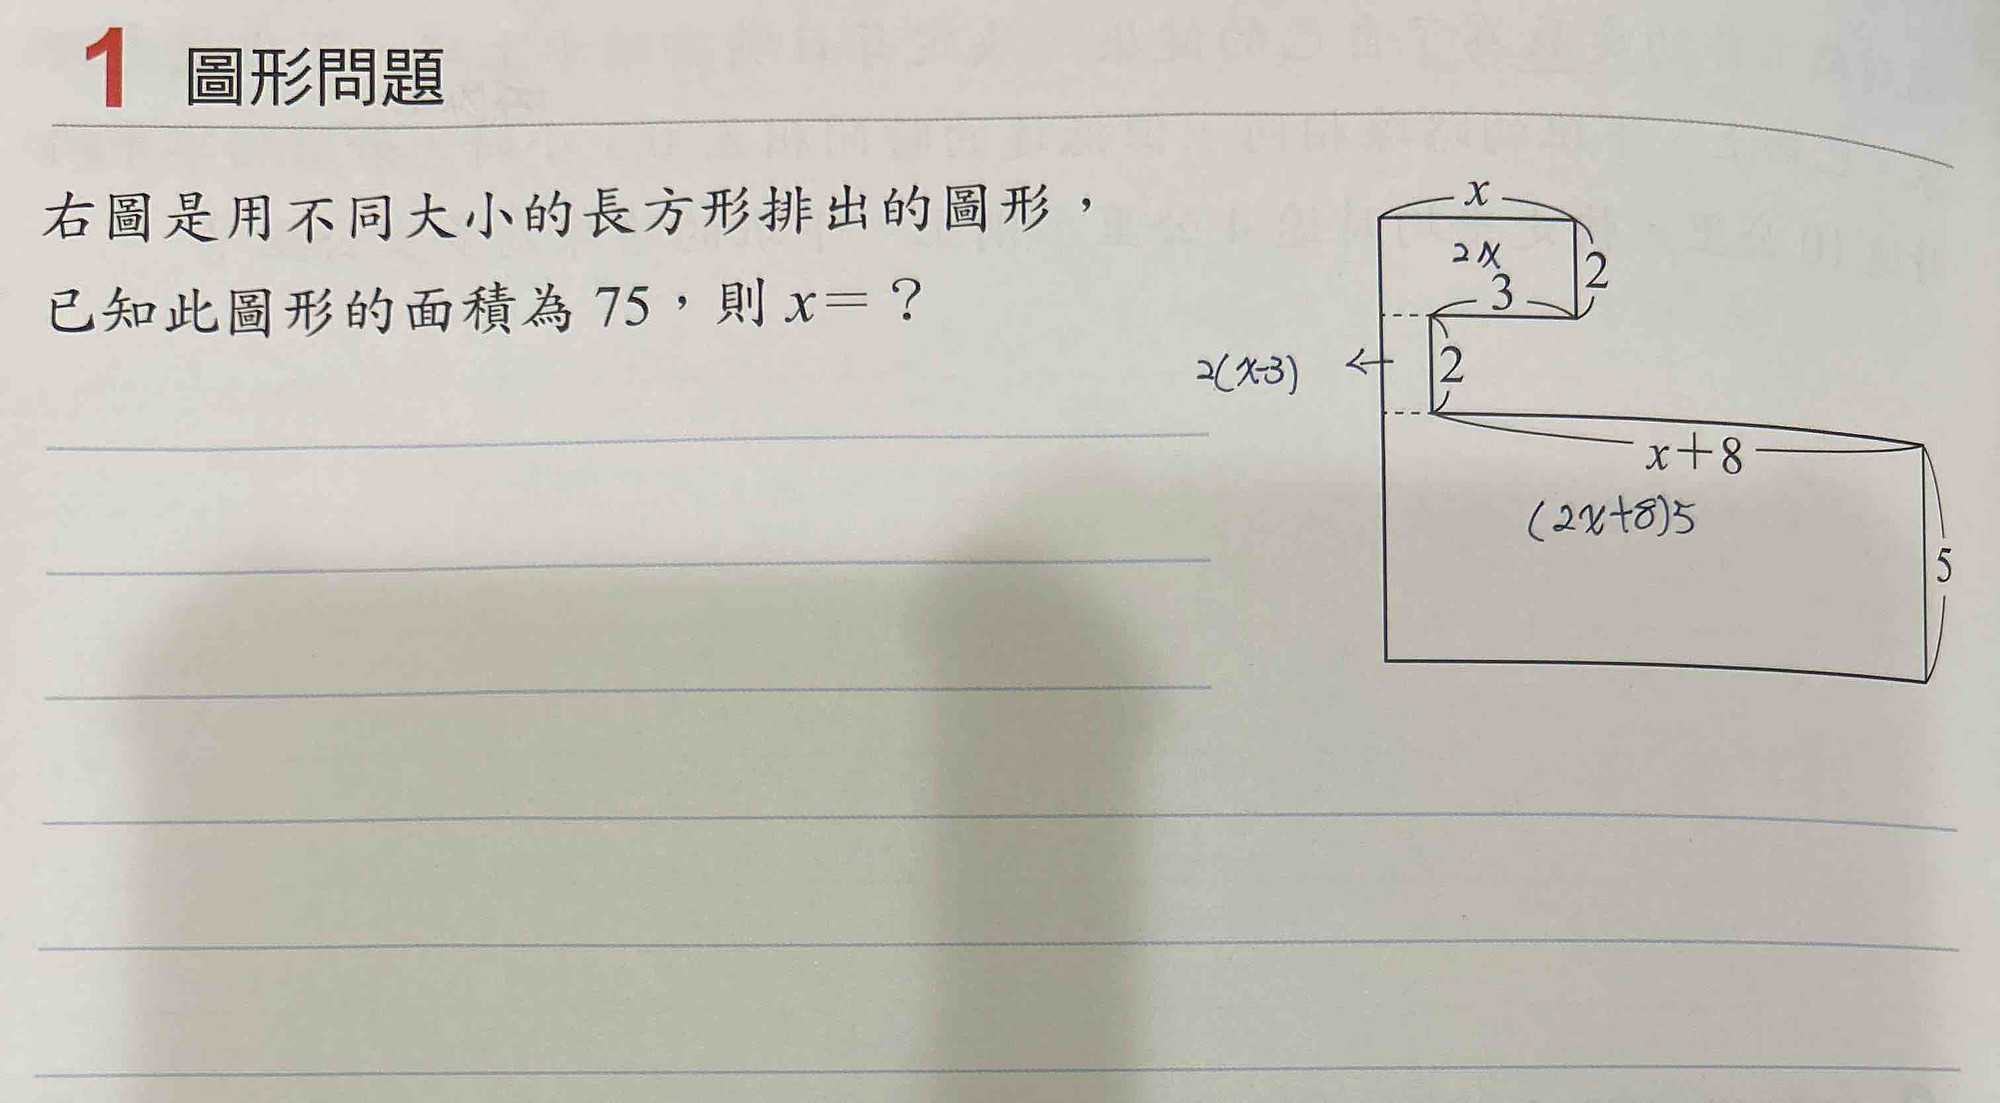 1 圖形問題
右圖是用不同大小的長方形排出的圖形，
已知此圖形的面積為 75，則 x＝？
x
2x
2
3
2(x-3) ←
2
x＋8
(2x+8)5
5